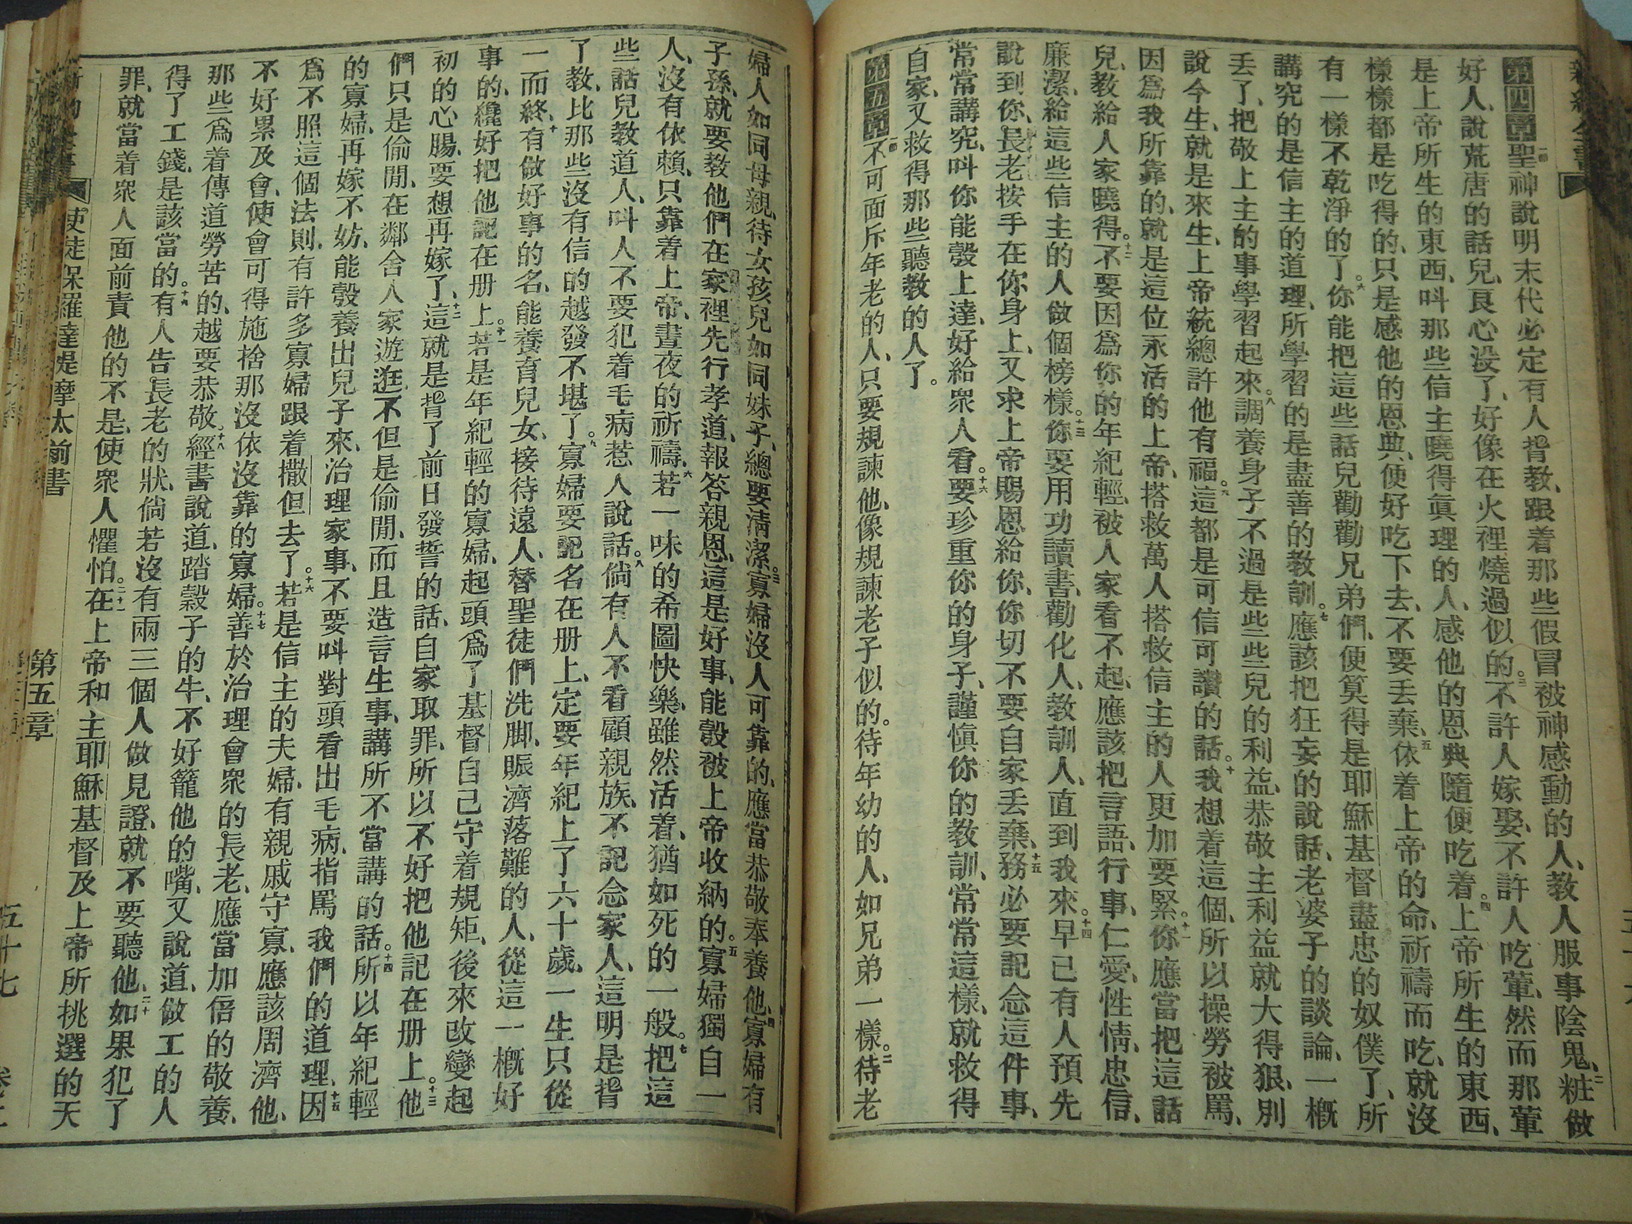 新約全書
第四章聖神說明末代必定有人背教、跟着那些假冒被神感動的人、教人服事陰鬼、二粧做
好人、說荒唐的話兒、良心沒了、好像在火裡燒過似的。三不許人嫁娶、不許人吃葷、然而那葷
是上帝所生的東西、叫那些信主曉得眞理的人、感他的恩典隨便吃着。四上帝所生的東西、
樣樣都是吃得的、只是感他的恩典、便好吃下去、不要丟棄、五依着上帝的命、祈禱而吃、就沒
有一樣不乾淨的了。六你能把這些話兒勸勸兄弟們、便算得是耶穌基督盡忠的奴僕了、所
講究的是信主的道理、所學習的是盡善的教訓。七應該把狂妄的說話、老婆子的談論、一概
丟了、把敬上主的事學習起來。八調養身子不過是些些兒的利益、恭敬主利益就大得狠、別
說今生、就是來生、上帝統總許他有福。九這都是可信可讚的話。十我想着這個、所以操勞被罵、
因爲我所靠的、就是這位永活的上帝、搭救萬人、搭救信主的人更加要緊。十一你應當把這話
兒、教給人家曉得。十二不要因爲你的年紀輕、被人家看不起、應該把言語、行事、仁愛、性情、忠信、
廉潔、給這些信主的人做個榜樣。十三你要用功讀書、勸化人、教訓人、直到我來。十四早已有人預先
說到你、長老按手在你身上、又求上帝賜恩給你、你切不要自家丟棄、十五務必要記念這件事、
常常講究、叫你能彀上達、好給衆人看。十六要珍重你的身子、謹慎你的教訓、常常這樣、就救得
自家、又救得那些聽教的人了。
第五章不可面斥年老的人、只要規諫他、像規諫老子似的。待年幼的人、如兄弟一樣。二待老
婦人如同母親、待女孩兒如同妹子、總要淸潔。三寡婦沒人可靠的、應當恭敬奉養他、四寡婦有
子孫、就要教他們在家裡先行孝道、報答親恩、這是好事、能彀被上帝收納的。五寡婦獨自一
人、沒有依賴、只靠着上帝、晝夜的祈禱、六若一味的希圖快樂、雖然活着、猶如死的一般。七把這
些話兒教道人、叫人不要犯着毛病惹人說話。八倘有人不看顧親族、不記念家人、這明是背
了教、比那些沒有信的越發不堪了。九寡婦要記名在册上、定要年紀上了六十歲、一生只從
一而終、十有做好事的名、能養育兒女、接待遠人、替聖徒們洗脚、賑濟落難的人、從這一槪好
事的、纔好把他記在册上。十一若是年紀輕的寡婦、起頭爲了基督自己守着規矩、後來改變起
初的心腸、要想再嫁了、十二這就是背了前日發誓的話、自家取罪、所以不好把他記在册上。十三他
們只是偷閒、在鄰舍人家遊逛、不但是偷閒、而且造言生事、講所不當講的話。十四所以年紀輕
的寡婦、再嫁不妨、能彀養出兒子來、治理家事、不要叫對頭看出毛病、指罵我們的道理、十五因
爲不照這個法則、有許多寡婦跟着撒但去了。十六若是信主的夫婦、有親戚守寡、應該周濟他、
不好累及會、使會可得施捨那沒依沒靠的寡婦。十七善於治理會衆的長老、應當加倍的敬養、
那些爲着傳道勞苦的、越要恭敬、十八經書說道、踏穀子的牛、不好籠他的嘴、又說道、做工的人
得了工錢、是該當的。十九有人告長老的狀、倘若沒有兩三個人做見證、就不要聽他、二十如果犯了
罪、就當着衆人面前責他的不是、使衆人懼怕。二十一在上帝和主耶穌基督及上帝所挑選的天
使徒保羅達提摩太前書 第五章 五十七